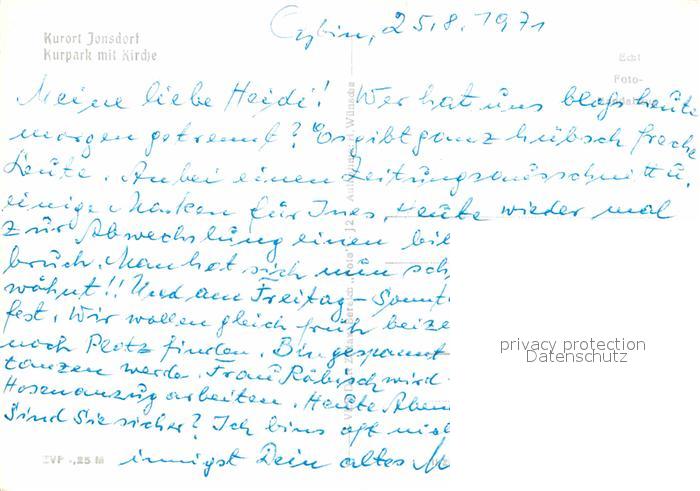 Oybin, 25.8.1971
Kurort Jonsdorf
Kurpark mit Kirche
Echt
Foto-
Meine liebe Heidi! Wer hat uns bloß heute
morgen getrennt? Es gibt ganz hübsch freche
Leute. Anbei einen Zeitungsausschnitt u.
einige Marken für Ines. Heute wieder mal
zur Abwechslung einen
bruch. Man hat sich nun sch
wöhnt!! Und am Freitag - Sonnt
fest. Wir wollen gleich früh beize
noch Platz finden. Bin gespannt
tanzen werde. Frau Räbisch wird
Hosenanzug arbeiten. Heute Aben
Sind Sie sicher? Ich bins oft nich
innigst Dein altes M
EVP -,25 M
privacy protection
Datenschutz